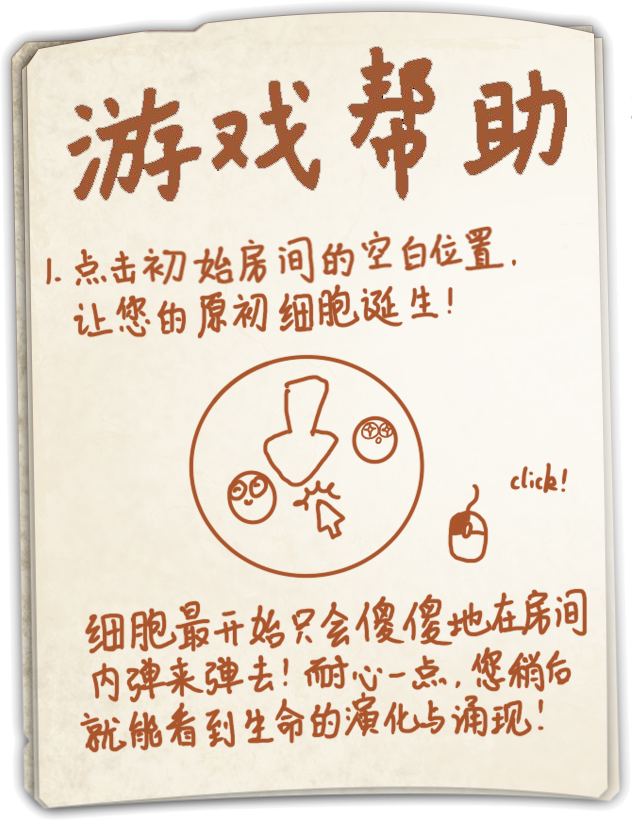 游戏帮助
1. 点击初始房间的空白位置,
让您的原初细胞诞生!
click!
细胞最开始只会傻傻地在房间
内弹来弹去!耐心一点,您稍后
就能看到生命的演化与涌现!